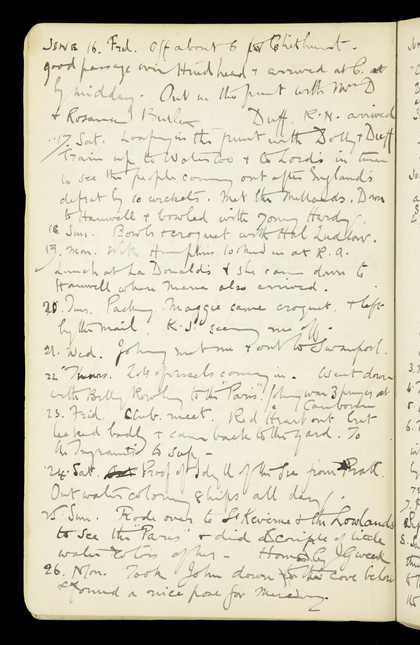 JUNE 16. Frd. Off about 6 to Chithurst.
good passage over Hindhead & arrived at C. at
by midday. Out in the punt with Mrs D
& Rosamund Duff. R.N. arrived
17. Sat. Loafing in the punt with Dolly & Duff
train up to Waterloo & to Lord's in time
to see the people coming out after England's
defeat by 10 wickets. Met the Mullands. Down
to Hanwell & bowled with young Hardy.
18 Sun. Bowls & croquet with Hal Ludlow.
19. Mon. with Humphris to at R.A.
Lunch at La Donald's & she came down to
Hanwell where Marie also arrived.
20. Tues. Packing. Maggie came croquet. & left
by the mail. K. St seeing me off.
21. Wed. Johnny met me & out to Swanpool.
22 Thurs. Lots of parcels coming in. Went down
with Billy Rowling to the "Paris". Johnny won 3 prizes at
Camborne
23. Frid. Club. meet. Rd Heart out but
leaked badly & came back to the yard. To
the Ingrams to sup -
24. Sat. Proof of Idyll of the Sea from Pratt.
Out water coloring ships all day.
25 Sun. Rode over to St Keverne & the Lowlands
to see the "Paris" & did a couple of little
water colors of her - Home by Gweek
26. Mon. Took John down to the cove below
& found a nice pose for Mercury.